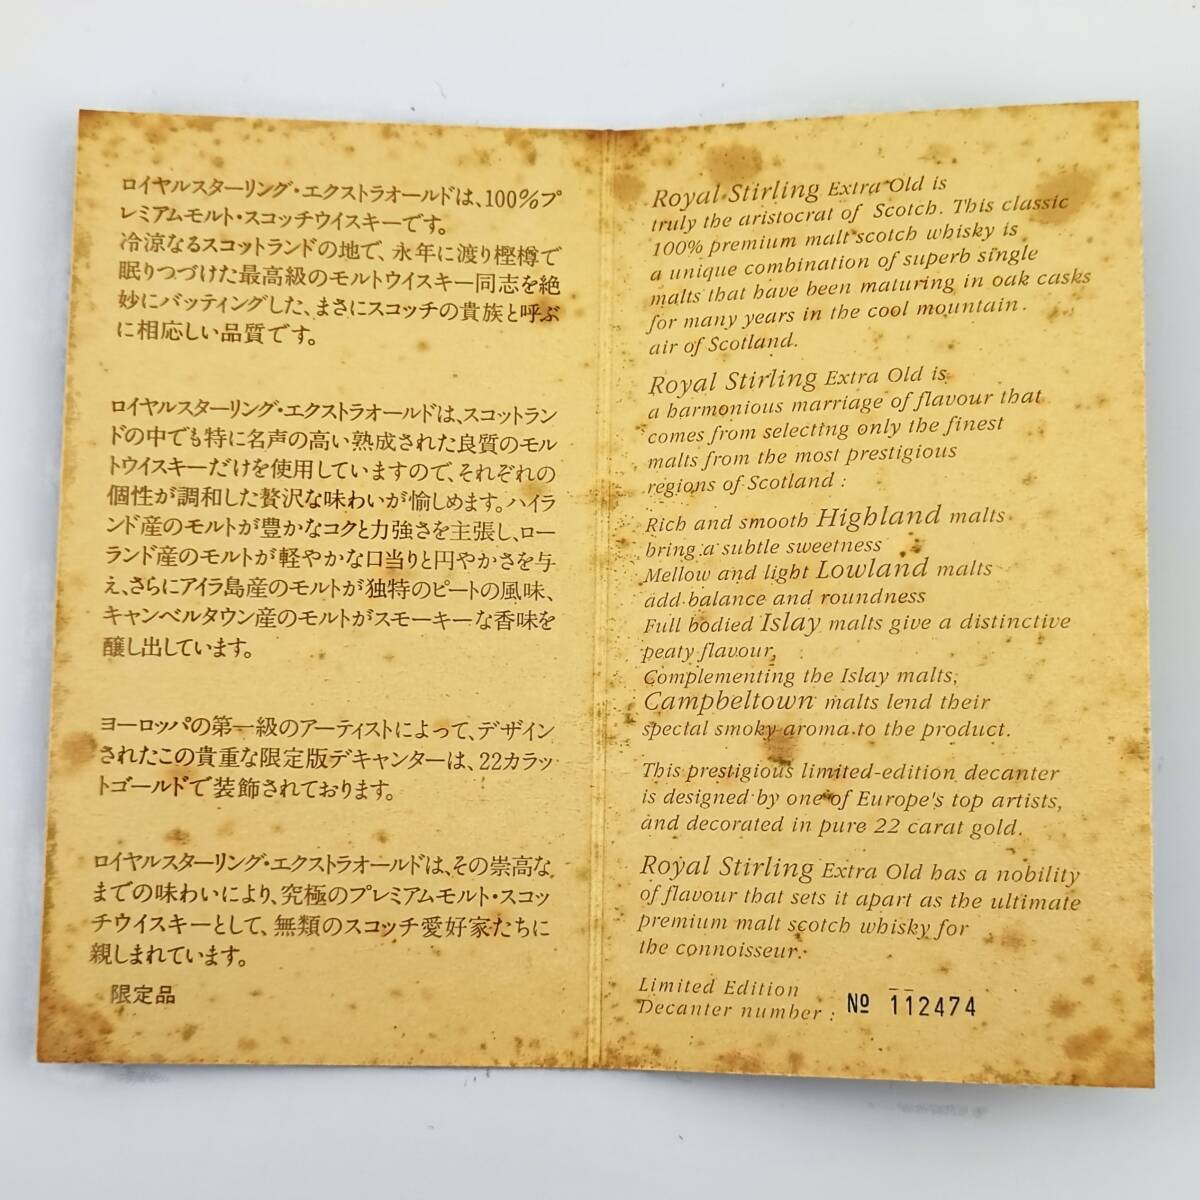 ロイヤルスターリング・エクストラオールドは、100%プ
レミアムモルト・スコッチウイスキーです。
冷涼なるスコットランドの地で、永年に渡り樫樽で
眠りつづけた最高級のモルトウイスキー同志を絶
妙にバッティングした、まさにスコッチの貴族と呼ぶ
に相応しい品質です。
ロイヤルスターリング・エクストラオールドは、スコットラン
ドの中でも特に名声の高い熟成された良質のモル
トウイスキーだけを使用していますので、それぞれの
個性が調和した贅沢な味わいが愉しめます。ハイラ
ンド産のモルトが豊かなコクと力強さを主張し、ロー
ランド産のモルトが軽やかな口当りと円やかさを与
え、さらにアイラ島産のモルトが独特のピートの風味、
キャンベルタウン産のモルトがスモーキーな香味を
醸し出しています。
ヨーロッパの第一級のアーティストによって、デザイン
されたこの貴重な限定版デキャンターは、22カラッ
トゴールドで装飾されております。
ロイヤルスターリング・エクストラオールドは、その崇高な
までの味わいにより、究極のプレミアムモルト・スコッ
チウイスキーとして、無類のスコッチ愛好家たちに
親しまれています。
限定品
Royal Stirling Extra Old is
truly the aristocrat of Scotch. This classic
100% premium malt scotch whisky is
a unique combination of superb single
malts that have been maturing in oak casks
for many years in the cool mountain
air of Scotland.
Royal Stirling Extra Old is
a harmonious marriage of flavour that
comes from selecting only the finest
malts from the most prestigious
regions of Scotland :
Rich and smooth Highland malts
bring a subtle sweetness
Mellow and light Lowland malts
add balance and roundness
Full bodied Islay malts give a distinctive
peaty flavour,
Complementing the Islay malts,
Campbeltown malts lend their
special smoky aroma to the product.
This prestigious limited-edition decanter
is designed by one of Europe's top artists,
and decorated in pure 22 carat gold.
Royal Stirling Extra Old has a nobility
of flavour that sets it apart as the ultimate
premium malt scotch whisky for
the connoisseur.
Limited Edition
Decanter number : № 112474